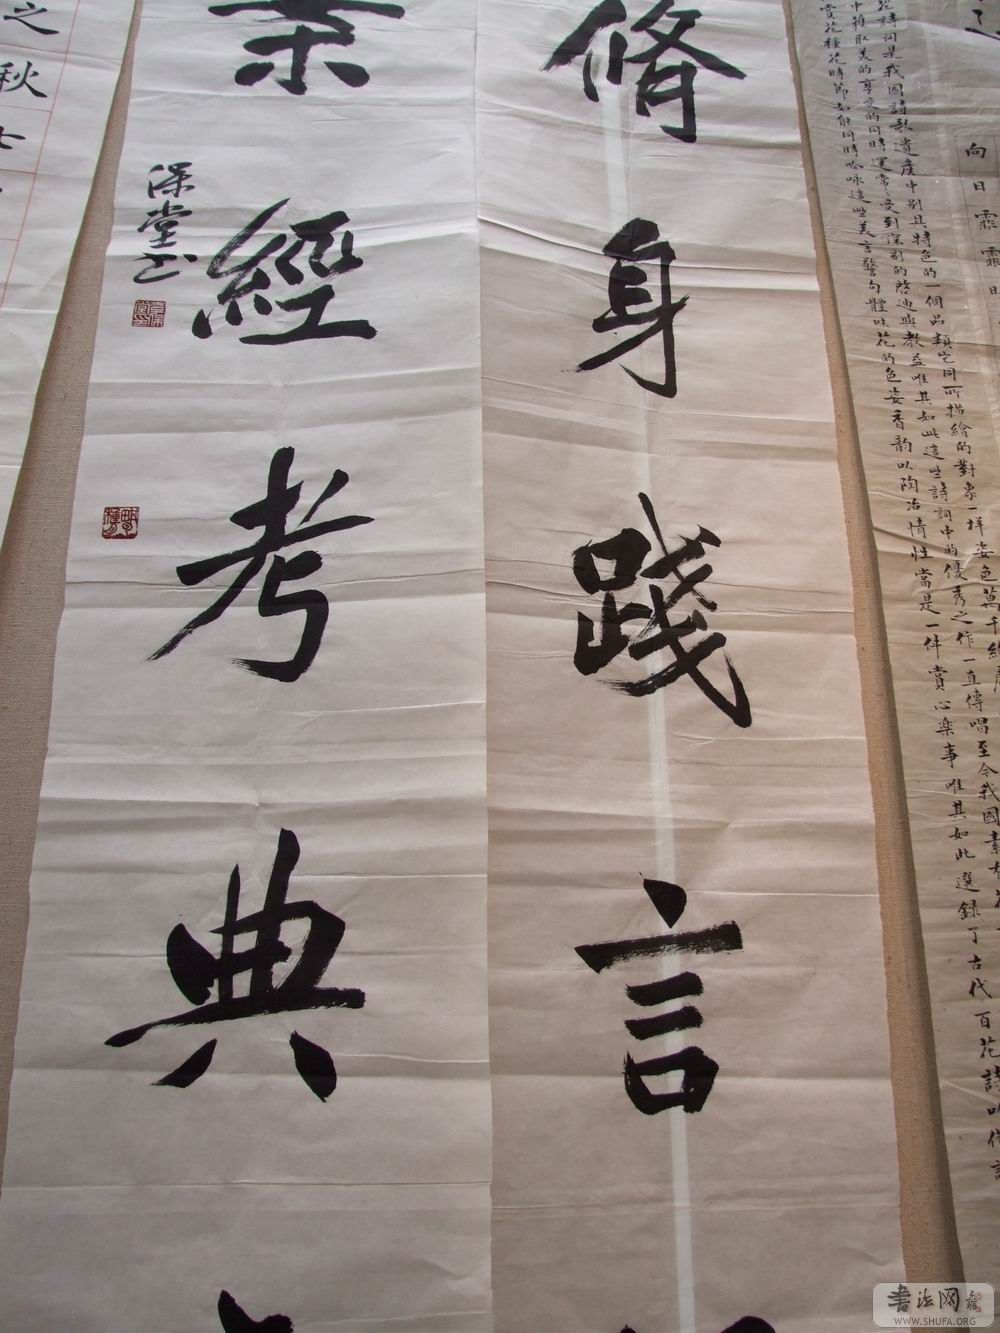 脩身踐言
宗經考典
保堂书
之秋
向日霏霏
花詩詞是我國詩歌遺產中别具特色的一個品類它同所描繪的對象一样姿色萬千
中獲取美的享受的同時還常常受到深刻的啓迪與教益唯其如此這些詩詞中的優秀之作一直傳唱至今我國素有
賞花種花時節如能同時吟咏這些美言警句體味花的色姿香韵以陶冶情性當是一件賞心樂事唯其如此選録了古代百花詩
书法网
WWW.SHUFA.ORG